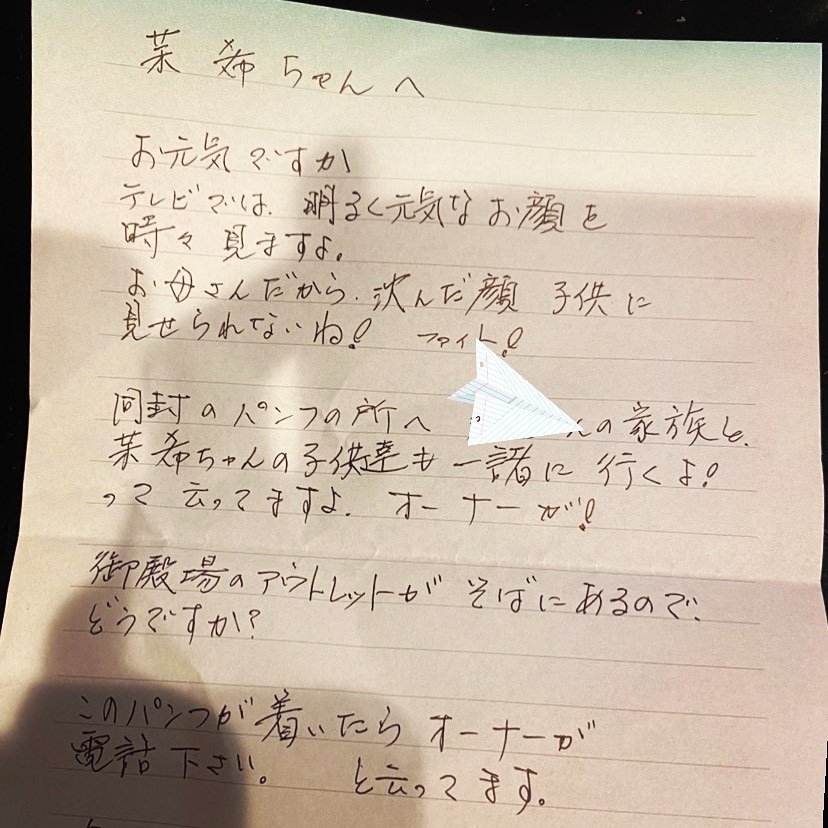 茉希ちゃんへ
お元気ですか
テレビでは、明るく元気なお顔を
時々見ますよ。
お母さんだから、沈んだ顔 子供に
見せられないね! ファイト!
同封のパンフの所へ んの家族と、
茉希ちゃんの子供達も一諸に行くよ!
って云ってますよ。オーナーが!
御殿場のアウトレットがそばにあるので、
どうですか?
このパンフが着いたらオーナーが
電話下さい。 と云ってます。